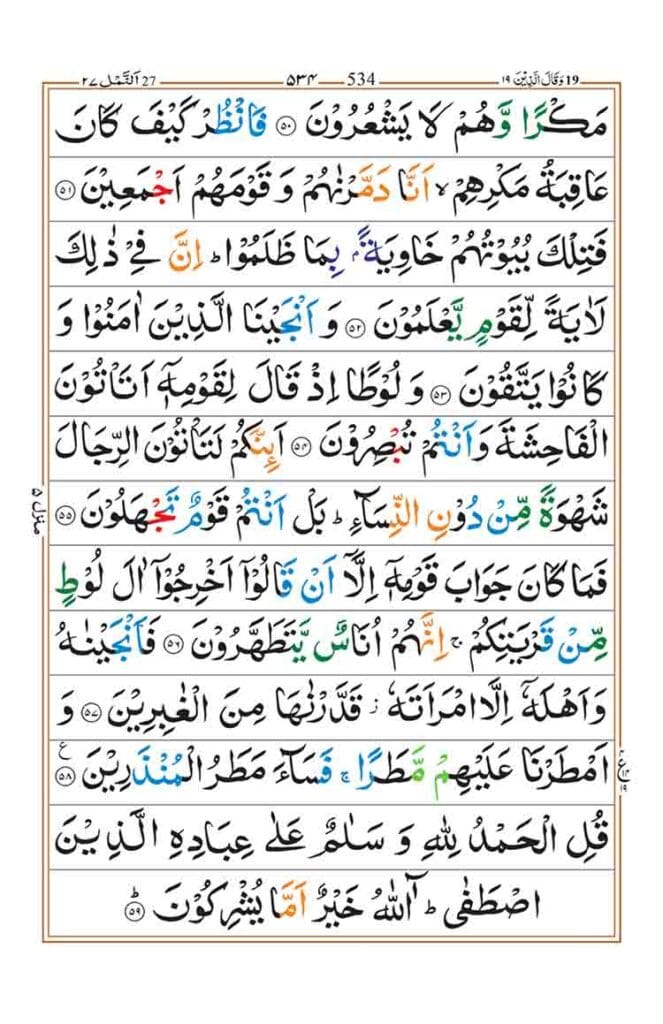 ١٩ وَقَالَ الَّذِيْنَ 19 534 ۵۳۴ 27 اَلنَّمْل ٢٧
مَكْرًا وَّ هُمْ لَا يَشْعُرُوْنَ ۝۵۰ فَانْظُرْ كَيْفَ كَانَ
عَاقِبَةُ مَكْرِهِمْ ۙ اَنَّا دَمَّرْنٰهُمْ وَ قَوْمَهُمْ اَجْمَعِيْنَ ۝۵۱
فَتِلْكَ بُيُوْتُهُمْ خَاوِيَةًۢ بِمَا ظَلَمُوْا ؕ اِنَّ فِيْ ذٰلِكَ
لَاٰيَةً لِّقَوْمٍ يَّعْلَمُوْنَ ۝۵۲ وَ اَنْجَيْنَا الَّذِيْنَ اٰمَنُوْا وَ
كَانُوْا يَتَّقُوْنَ ۝۵۳ وَ لُوْطًا اِذْ قَالَ لِقَوْمِهٖۤ اَتَاْتُوْنَ
الْفَاحِشَةَ وَ اَنْتُمْ تُبْصِرُوْنَ ۝۵۴ اَىِٕنَّكُمْ لَتَاْتُوْنَ الرِّجَالَ
شَهْوَةً مِّنْ دُوْنِ النِّسَآءِ ؕ بَلْ اَنْتُمْ قَوْمٌ تَجْهَلُوْنَ ۝۵۵
منزل ۵
فَمَا كَانَ جَوَابَ قَوْمِهٖۤ اِلَّاۤ اَنْ قَالُوْۤا اَخْرِجُوْۤا اٰلَ لُوْطٍ
مِّنْ قَرْيَتِكُمْ ۚ اِنَّهُمْ اُنَاسٌ يَّتَطَهَّرُوْنَ ۝۵۶ فَاَنْجَيْنٰهُ
وَ اَهْلَهٗۤ اِلَّا امْرَاَتَهٗ ؗ قَدَّرْنٰهَا مِنَ الْغٰبِرِيْنَ ۝۵۷ وَ
اَمْطَرْنَا عَلَيْهِمْ مَّطَرًا ۚ فَسَآءَ مَطَرُ الْمُنْذَرِيْنَ ۝۵۸ ع
قُلِ الْحَمْدُ لِلّٰهِ وَ سَلٰمٌ عَلٰى عِبَادِهِ الَّذِيْنَ
اصْطَفٰى ؕ آٰللّٰهُ خَيْرٌ اَمَّا يُشْرِكُوْنَ ۝۵۹ؕ